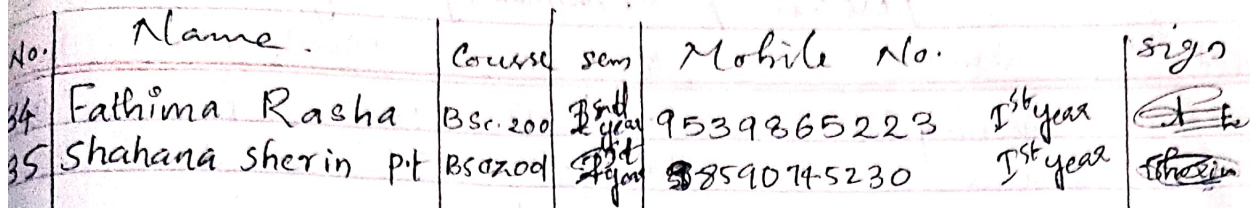 No. Name. Course sem Mobile No. sign
34 Fathima Rasha BSc. zoo year 9539865223 Ist year
35 Shahana sherin p.t BSc zoo 8590745230 Ist year Sherin